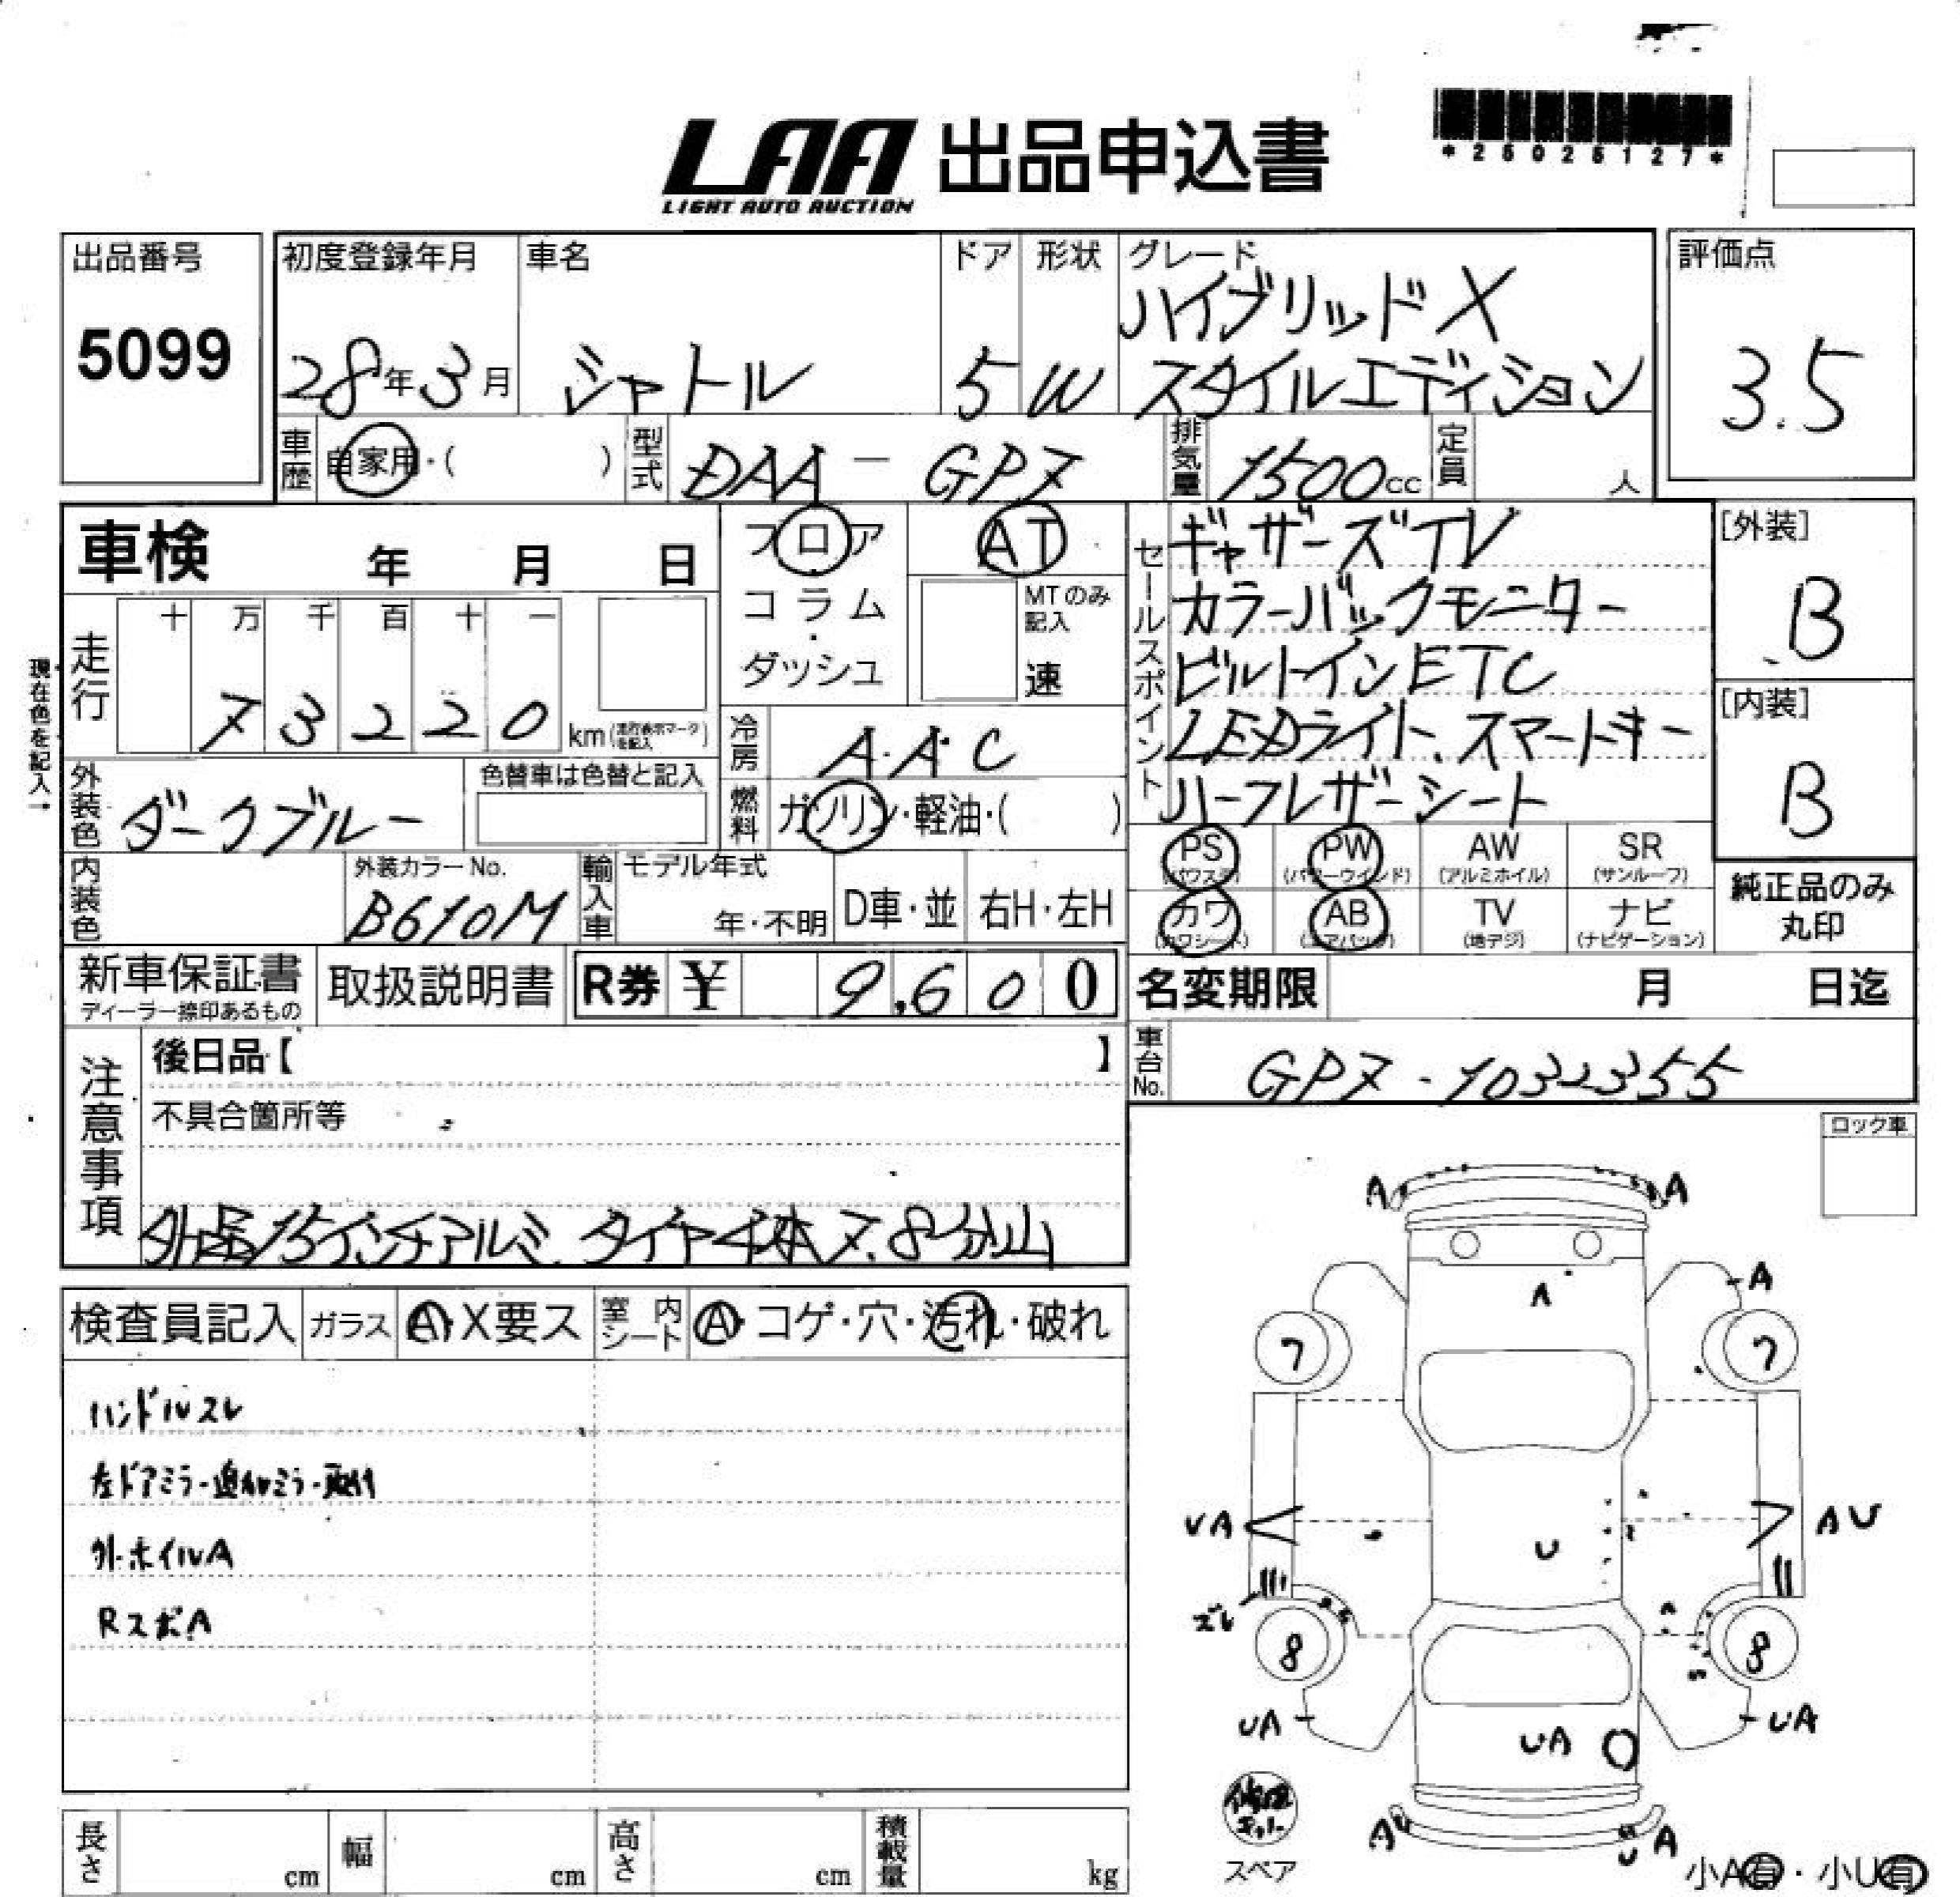 LAA 出品申込書
LIGHT AUTO AUCTION
*25025127*
出品番号
5099
初度登録年月
28年3月
車名
シャトル
ドア
5
形状
W
グレード
ハイブリッドX
スタイルエディション
評価点
3.5
車歴
自家用・( )
型式
DAA - GP7
排気量
1500cc
定員
人
車検 年 月 日
フロア
コラム・
ダッシュ
AT
MTのみ記入
速
セールスポイント
ギャザーズTV
カラーバックモニター
ビルトインETC
LEDライト、スマートキー
ハーフレザーシート
[外装]
B
[内装]
B
現在色を記入→
走行
十 万 千 百 十 一
7 3 2 2 0
km(走行表示マークを記入)
冷房
A・A・C
燃料
ガソリン・軽油・( )
外装色
ダークブルー
色替車は色替と記入
内装色
外装カラーNo.
B610M
輸入車
モデル年式
年・不明
D車・並
右H・左H
PS
(パワステ)
PW
(パワーウインド)
AW
(アルミホイル)
SR
(サンルーフ)
カワ
(カワシート)
AB
(エアバック)
TV
(地デジ)
ナビ
(ナビゲーション)
純正品のみ
丸印
新車保証書
ディーラー捺印あるもの
取扱説明書
R券 ¥ 9,600
名変期限 月 日迄
注意事項
後日品【 】
不具合箇所等
外品15インチアルミ、タイヤ4本7、8分山
車台No.
GP7-1032355
ロック車
検査員記入
ガラス
A・X要ス
室内シート
A・コゲ・穴・汚れ・破れ
ハンドルスレ
左ドアミラー追加ミラー取付
外ホイルA
RスポA
A A
A A
7 7
UA U AU
ズレ
8 8
UA UA UA
A A
U
修理キット
スペア
小A有・小U有
長さ cm
幅 cm
高さ cm
積載量 kg